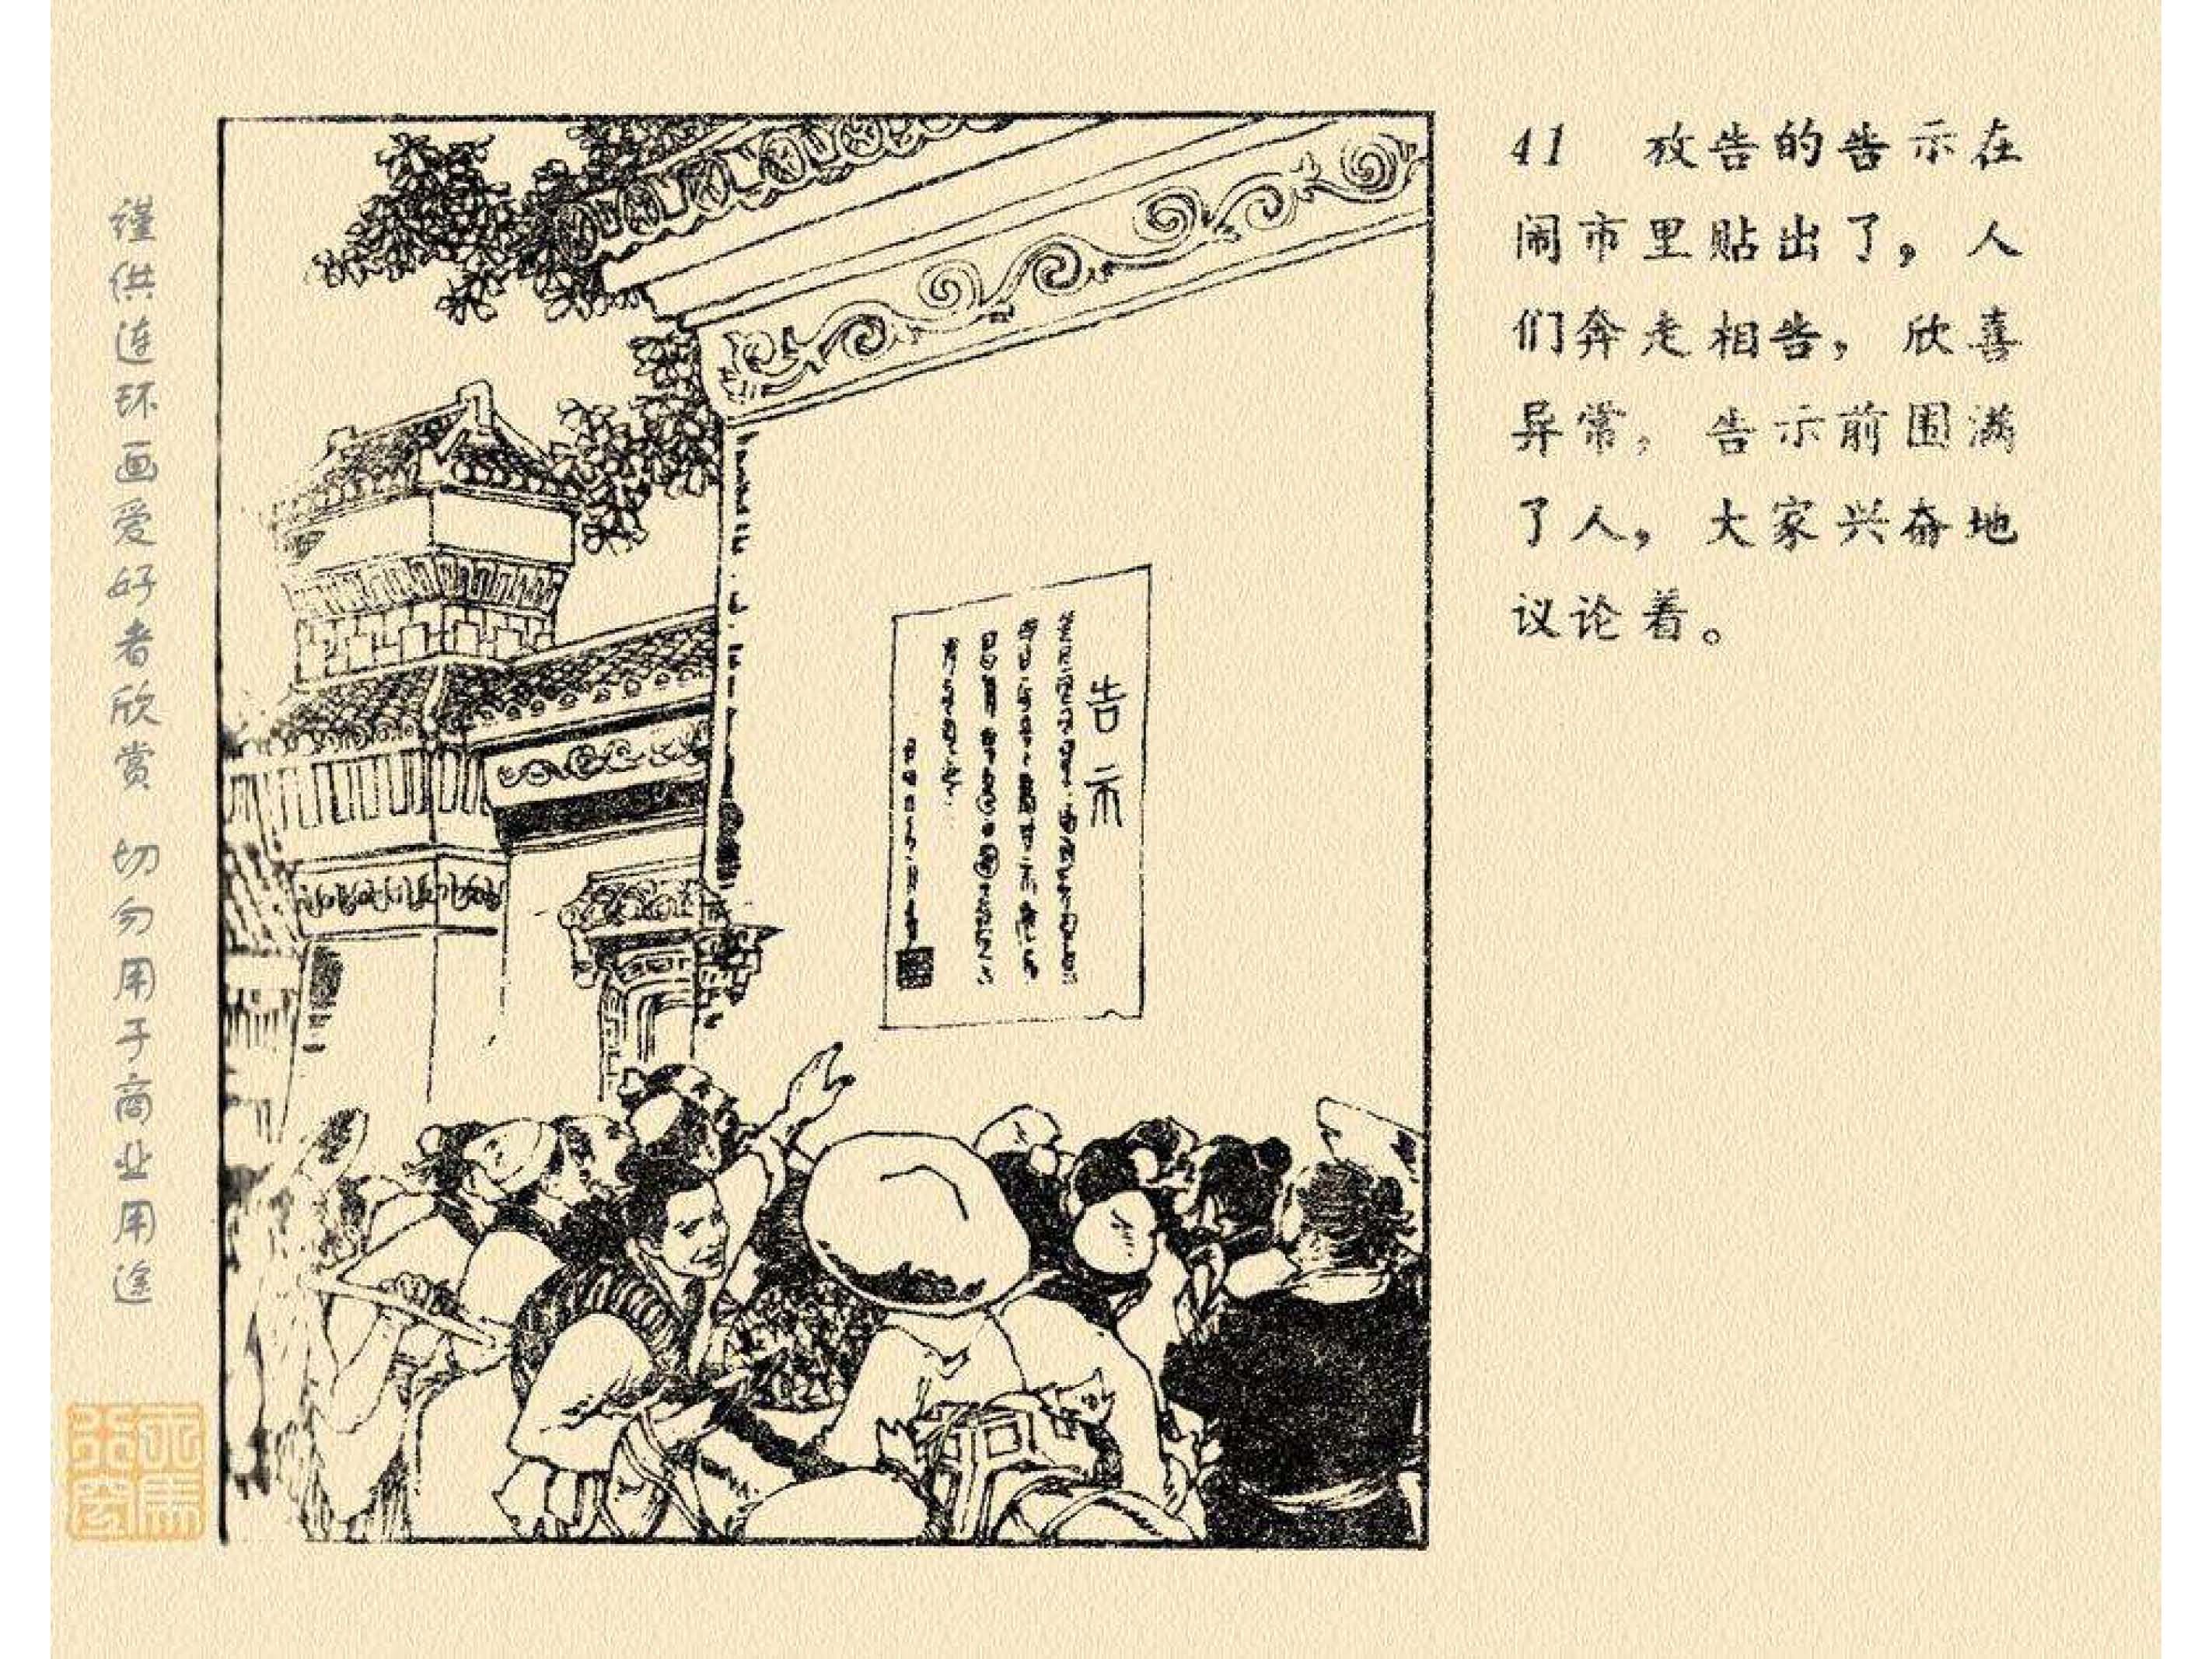 41 放告的告示在
闹市里贴出了，人
们奔走相告，欣喜
异常，告示前围满
了人，大家兴奋地
议论着。
告示
谨供连环画爱好者欣赏 切勿用于商业用途